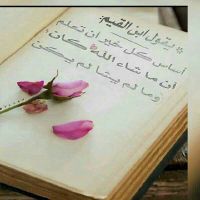 يقول ابن القيم:
أساس كل خير ان تعلم
ان ما شاء الله كان
وما لم يشا لم يكن